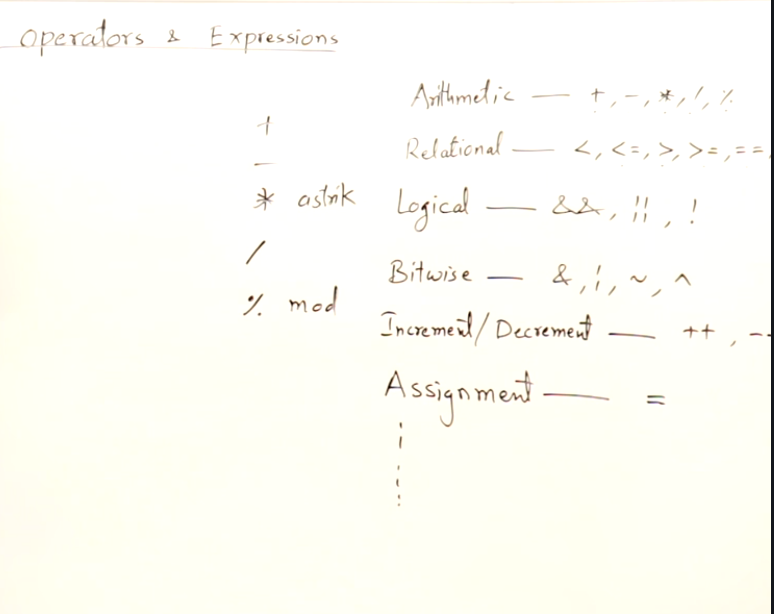 Operators & Expressions
+
-
* astrik
/
% mod
Arithmetic — +, -, *, /, %
Relational — <, <=, >, >=, ==,
Logical — &&, ||, !
Bitwise — &, |, ~, ^
Increment/Decrement — ++, --
Assignment — =